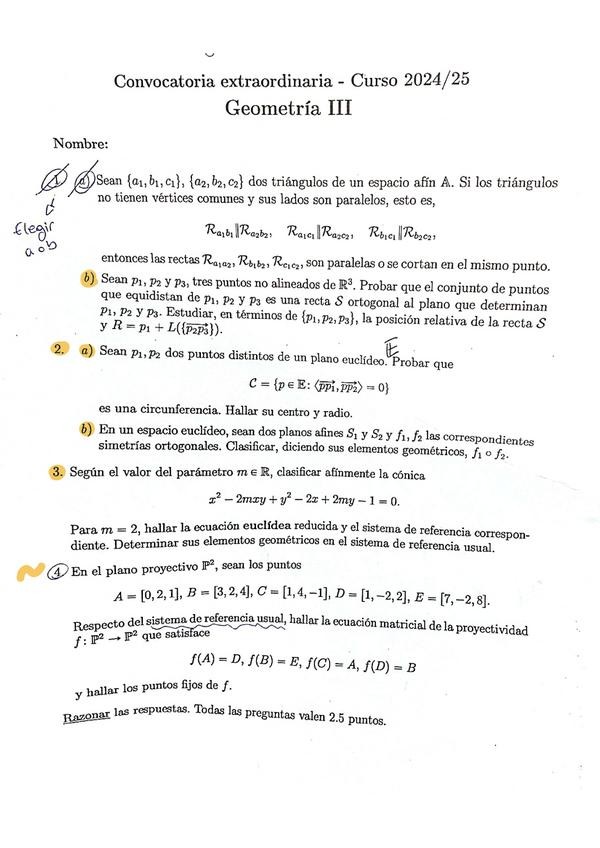 Convocatoria extraordinaria - Curso 2024/25
Geometría III
Nombre:
1. a) Sean {a₁, b₁, c₁}, {a₂, b₂, c₂} dos triángulos de un espacio afín 𝔸. Si los triángulos
no tienen vértices comunes y sus lados son paralelos, esto es,
Elegir
a o b
ℛ_{a₁b₁}∥ℛ_{a₂b₂}, ℛ_{a₁c₁}∥ℛ_{a₂c₂}, ℛ_{b₁c₁}∥ℛ_{b₂c₂},
entonces las rectas ℛ_{a₁a₂}, ℛ_{b₁b₂}, ℛ_{c₁c₂}, son paralelas o se cortan en el mismo punto.
b) Sean p₁, p₂ y p₃, tres puntos no alineados de ℝ³. Probar que el conjunto de puntos
que equidistan de p₁, p₂ y p₃ es una recta 𝒮 ortogonal al plano que determinan
p₁, p₂ y p₃. Estudiar, en términos de {p₁, p₂, p₃}, la posición relativa de la recta 𝒮
y R = p₁ + L({p₂p₃→}).
𝔼
2. a) Sean p₁, p₂ dos puntos distintos de un plano euclídeo. Probar que
𝒞 = {p ∈ 𝔼: ⟨pp₁→, pp₂→⟩ = 0}
es una circunferencia. Hallar su centro y radio.
b) En un espacio euclídeo, sean dos planos afines S₁ y S₂ y f₁, f₂ las correspondientes
simetrías ortogonales. Clasificar, diciendo sus elementos geométricos, f₁ ∘ f₂.
3. Según el valor del parámetro m ∈ ℝ, clasificar afínmente la cónica
x² − 2mxy + y² − 2x + 2my − 1 = 0.
Para m = 2, hallar la ecuación euclídea reducida y el sistema de referencia correspon-
diente. Determinar sus elementos geométricos en el sistema de referencia usual.
4. En el plano proyectivo ℙ², sean los puntos
A = [0, 2, 1], B = [3, 2, 4], C = [1, 4, −1], D = [1, −2, 2], E = [7, −2, 8].
Respecto del sistema de referencia usual, hallar la ecuación matricial de la proyectividad
f : ℙ² → ℙ² que satisface
f(A) = D, f(B) = E, f(C) = A, f(D) = B
y hallar los puntos fijos de f.
Razonar las respuestas. Todas las preguntas valen 2.5 puntos.